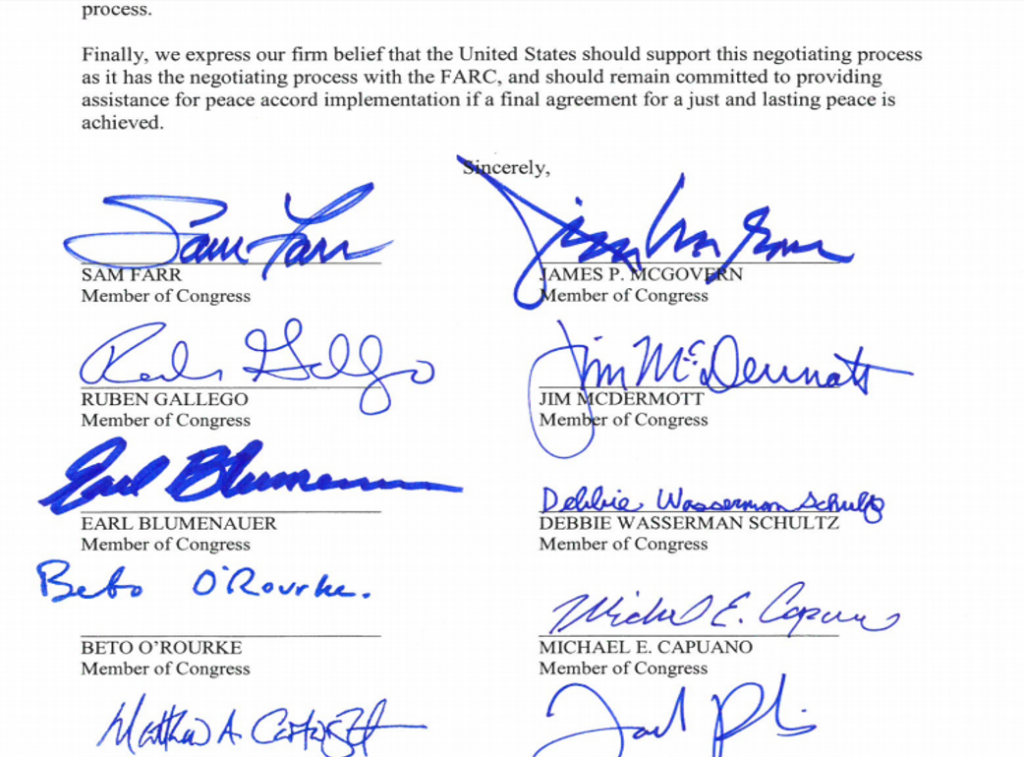 process.
Finally, we express our firm belief that the United States should support this negotiating process
as it has the negotiating process with the FARC, and should remain committed to providing
assistance for peace accord implementation if a final agreement for a just and lasting peace is
achieved.
Sincerely,
Sam Farr
SAM FARR
Member of Congress
Jim McGovern
JAMES P. MCGOVERN
Member of Congress
Ruben Gallego
RUBEN GALLEGO
Member of Congress
Jim McDermott
JIM MCDERMOTT
Member of Congress
Earl Blumenauer
EARL BLUMENAUER
Member of Congress
Debbie Wasserman Schultz
DEBBIE WASSERMAN SCHULTZ
Member of Congress
Beto O'Rourke.
BETO O’ROURKE
Member of Congress
Michael E. Capuano
MICHAEL E. CAPUANO
Member of Congress
Matthew A. Cartwright